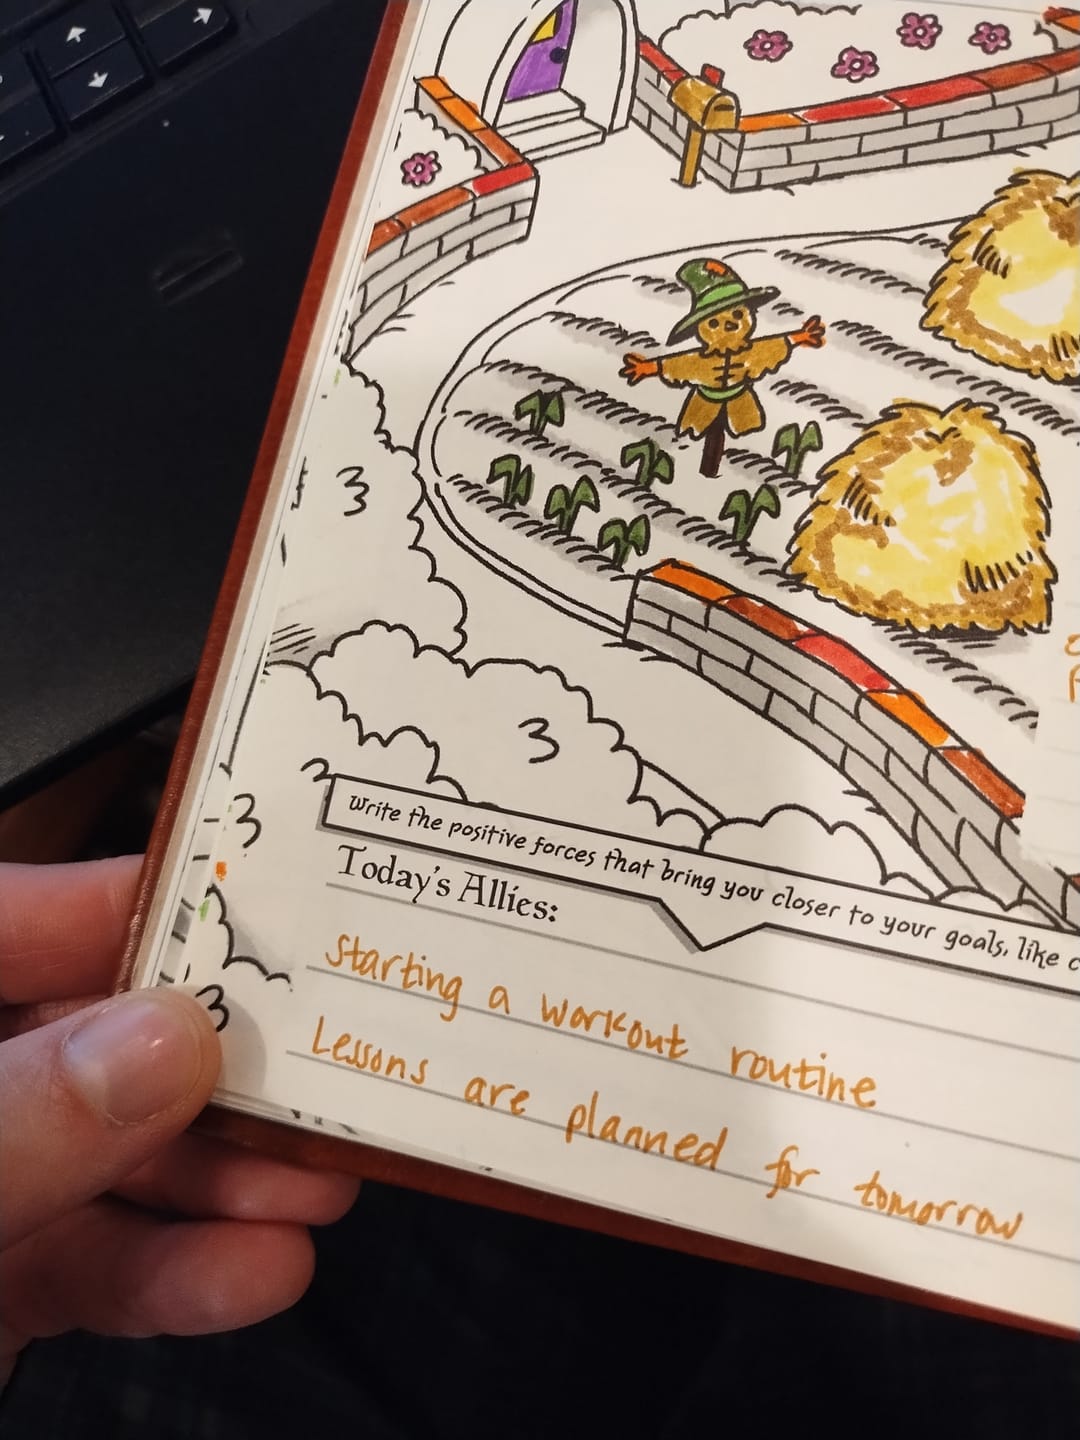 3
3
3
3
Write the positive forces that bring you closer to your goals, like
Today's Allies:
Starting a workout routine
Lessons are planned for tomorrow